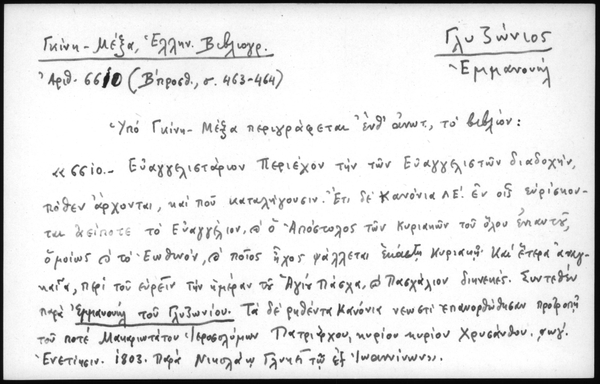 Γκίνη - Μέξα, Ἑλλην. Βιβλιογρ.
Γλυζώνιος
Ἐμμανουήλ
Ἀριθ. 6610 (Β' προσθ., σ. 463-464)
Ὑπό Γκίνη - Μέξα περιγράφεται ἔνθ' ἀνωτ, τό βιβλίον:
«6610.- Εὐαγγελιστάριον Περιέχον τήν τῶν Εὐαγγελιστῶν διαδοχήν,
πόθεν ἄρχονται, καί ποῦ καταλήγουσιν. Ἔτι δέ Κανόνια ΛΕ'. ἐν οἷς εὑρίσκον-
ται ἀείποτε τό Εὐαγγέλιον, ὁ Ἀπόστολος τῶν Κυριακῶν τοῦ ὅλου ἐνιαυτοῦ,
ὁμοίως τό Ἑωθινόν, ποῖος ἦχος ψάλλεται ἑκάστῃ Κυριακῇ. Καί ἕτερα ἀναγ-
καῖα, περί τοῦ εὑρεῖν τήν ἡμέραν τοῦ Ἁγίου Πάσχα, Πασχάλιον διηνεκές. Συντεθέν
παρά Ἐμμανουήλ τοῦ Γλυζωνίου. Τά δέ ῥηθέντα Κανόνια νεωστί ἐπανορθώθησαν προτροπῇ
τοῦ ποτέ Μακαριωτάτου Ἱεροσολύμων Πατριάρχου, κυρίου κυρίου Χρυσάνθου.
Ἐνετίησιν. 1803. Παρά Νικολάῳ Γλυκεῖ τῷ ἐξ Ἰωαννίνων».